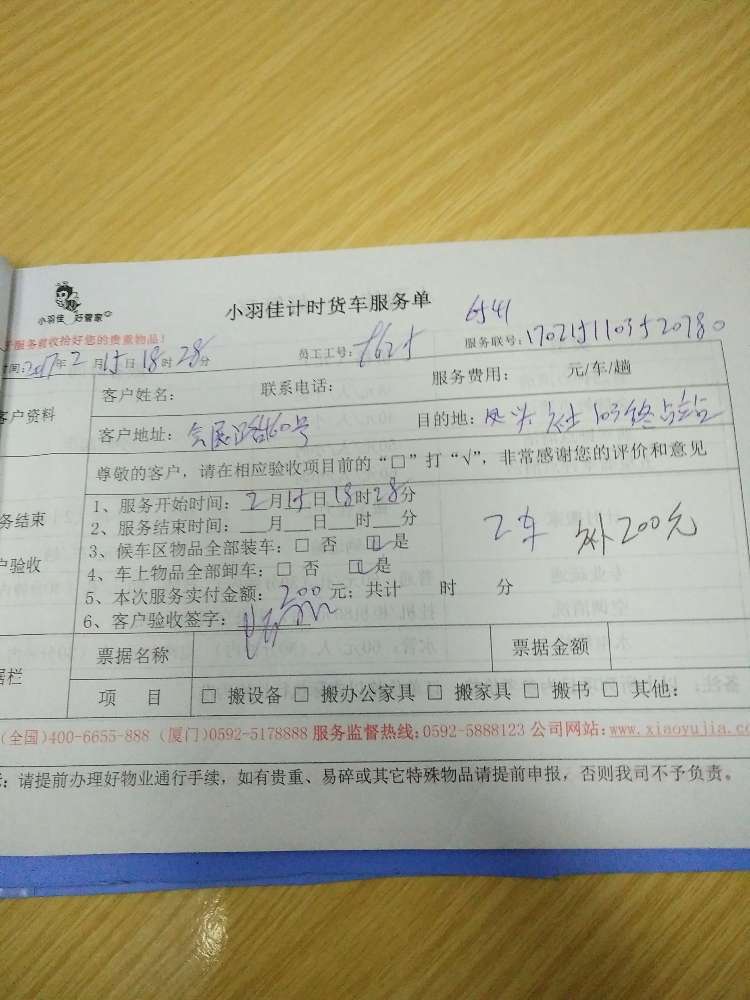 小羽佳 好管家
小羽佳计时货车服务单
6541
服务前收拾好您的贵重物品!
时间:2017年2月15日18时28分 员工工号: 服务联号:
客户资料 客户姓名: 联系电话: 服务费用: 元/车/趟
客户地址:会展路460号 目的地:凤头社103终点站
尊敬的客户,请在相应验收项目前的“□”打“√”,非常感谢您的评价和意见
务结束
户验收
1、服务开始时间:2月15日18时28分
2、服务结束时间:__月__日__时__分
3、候车区物品全部装车:□ 否 □ 是
4、车上物品全部卸车:□ 否 □ 是
2车 补200元
5、本次服务实付金额:200元;共计 时 分
6、客户验收签字:
据栏 票据名称 票据金额
项 目 □ 搬设备 □ 搬办公家具 □ 搬家具 □ 搬书 □ 其他:
(全国)400-6655-888 (厦门)0592-5178888 服务监督热线:0592-5888123 公司网站:www.xiaoyujia.co
:请提前办理好物业通行手续,如有贵重、易碎或其它特殊物品请提前申报,否则我司不予负责。